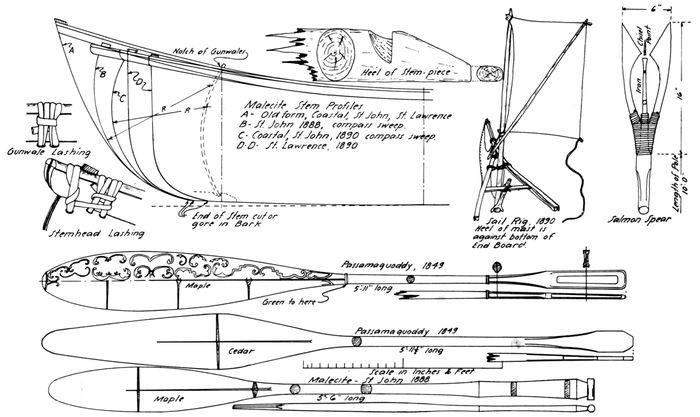 A
B
C
D
R
R
Notch of Gunwales
Heel of Stem-piece
Malecite Stem Profiles
A- Old form, Coastal, St John, St. Lawrence
B- St. John 1888, compass sweep.
C- Coastal, St. John, 1890 compass sweep.
D-D- St. Lawrence, 1890
Gunwale Lashing
Stemhead Lashing
End of Stem cut or
gore in Bark
Sail Rig, 1890
Heel of mast is
against bottom of
End Board.
6"
Chisel
Point
Iron
16"
Length of Pole
10'0"
Salmon Spear
Passamaquoddy, 1849
Maple
Green to here
5'-11" long
Passamaquoddy 1849
Cedar
5'-11½" long
Scale in Inches & Feet
Malecite - St John 1888
Maple
5'-6" long